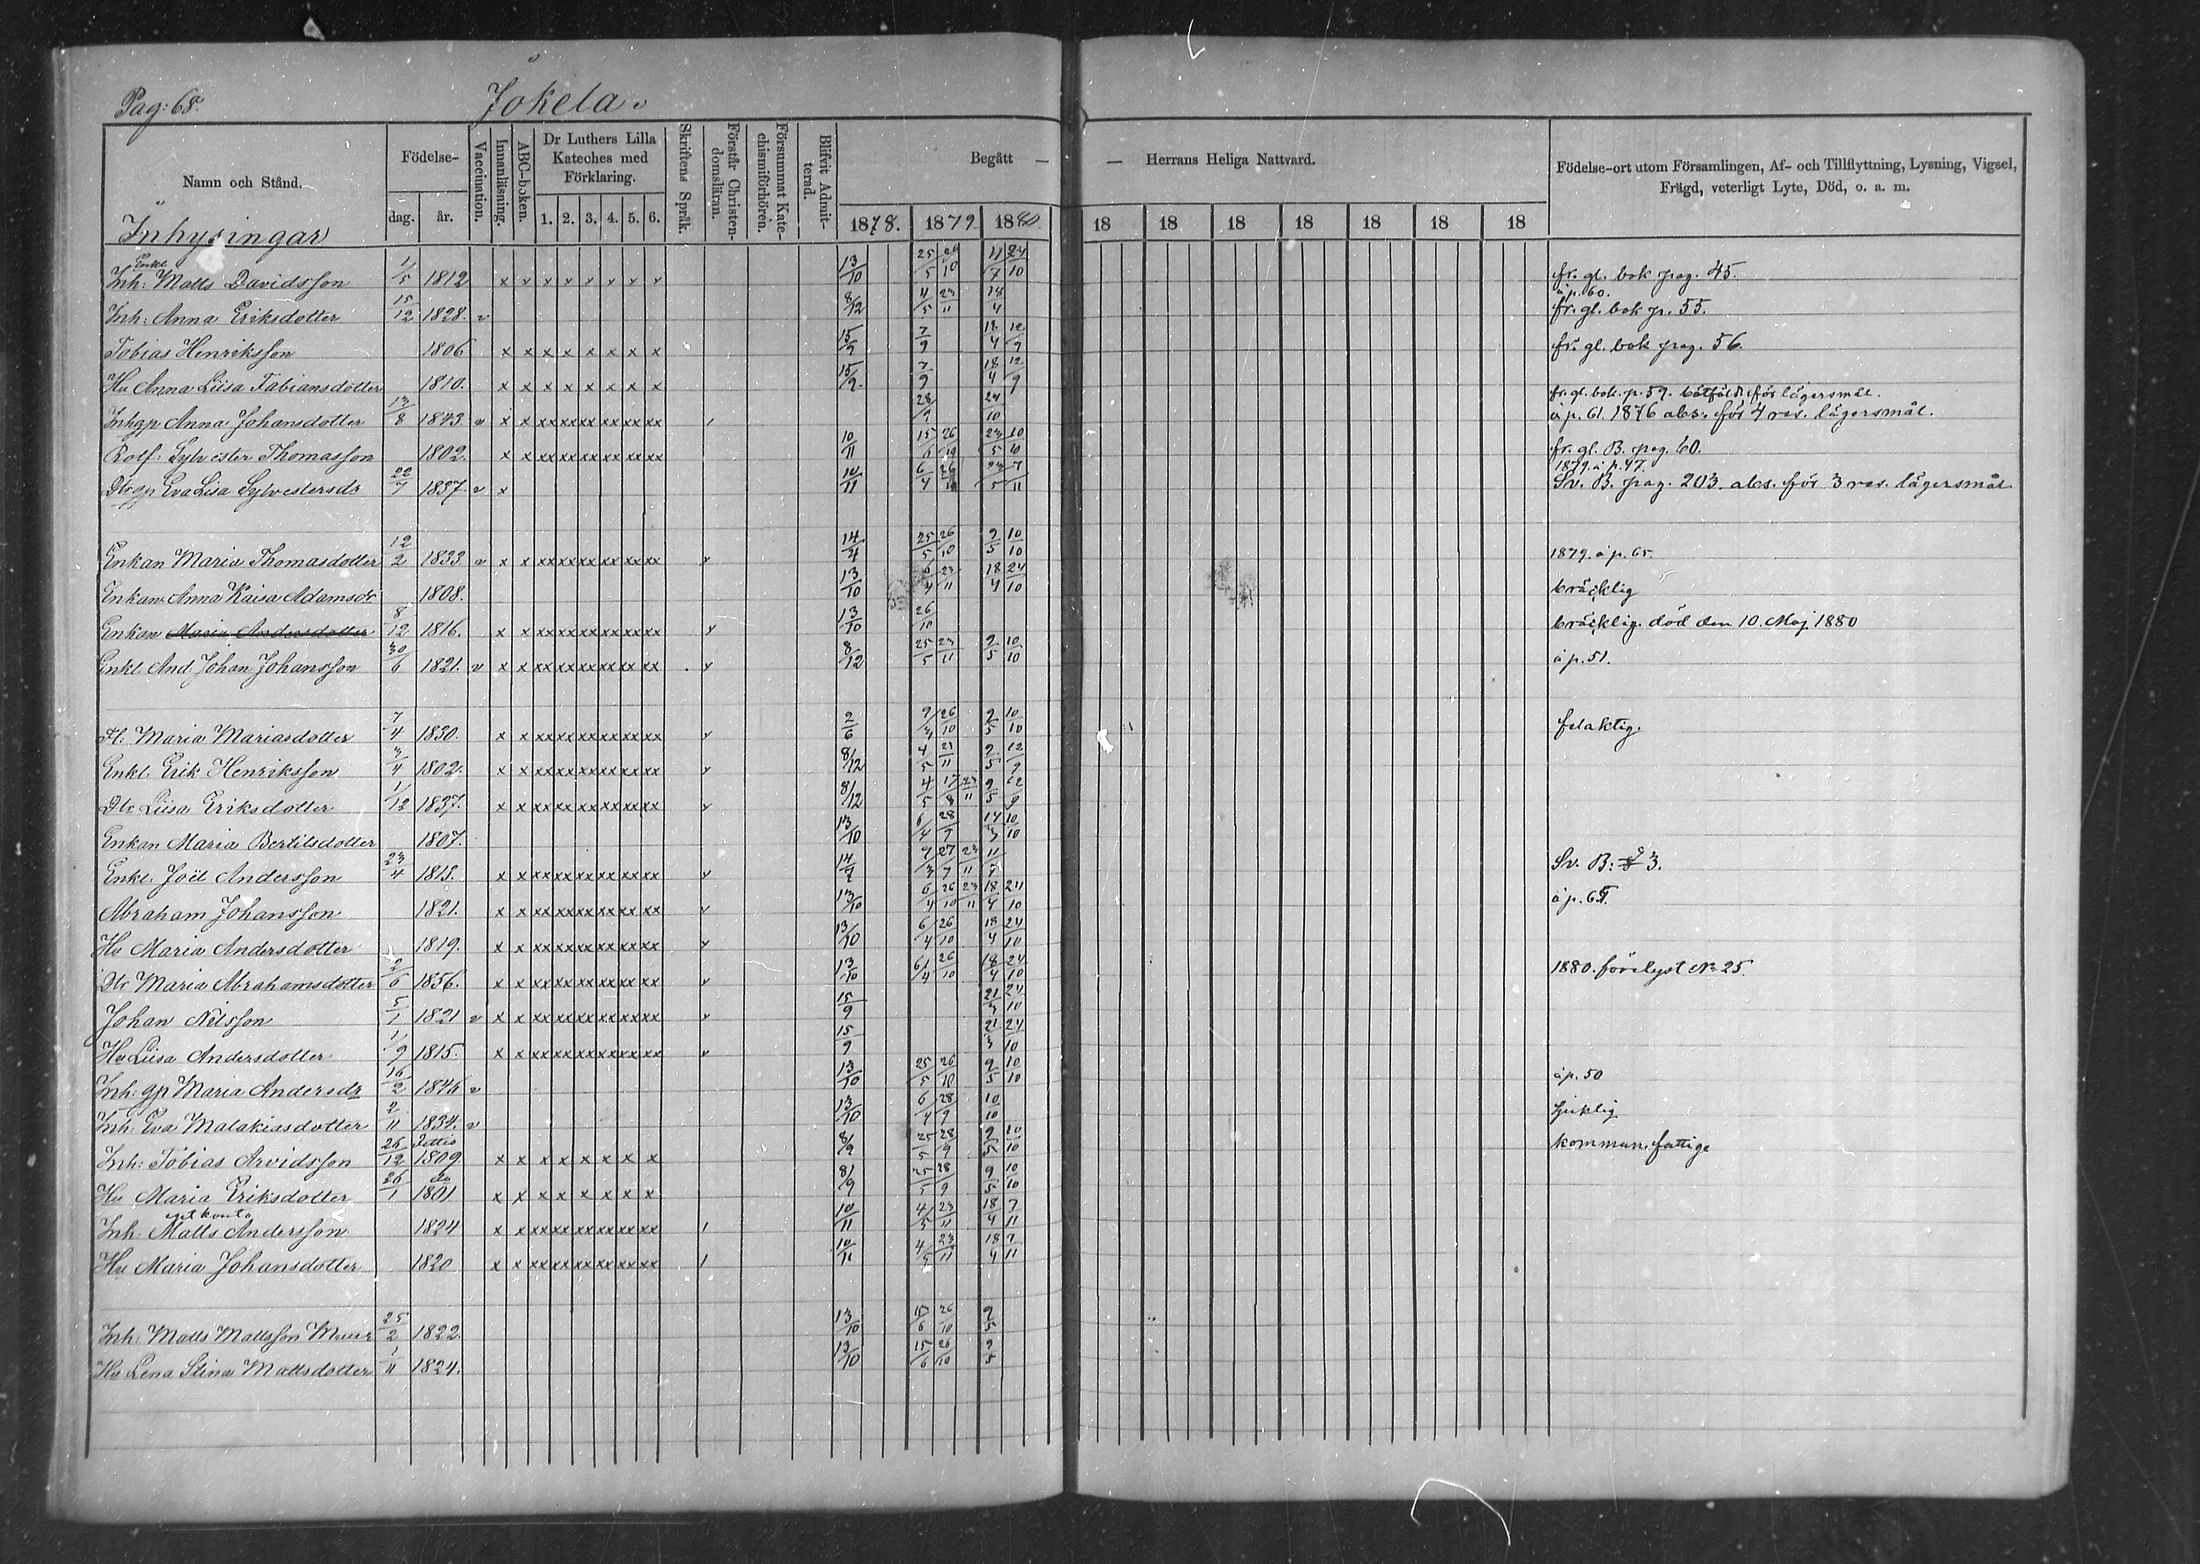 Pag: 68. Jokela.
Namn och Stånd. Födelse- dag. år. Vaccination. Innanläsning. ABC-boken. Dr Luthers Lilla Kateches med Förklaring. 1. 2. 3. 4. 5. 6. Skriftens Språk. Förstår Christendomsläran. Försummat Katechismiförhören. Blifvit Admitterad. Begått — — Herrans Heliga Nattvard. Födelse-ort utom Församlingen, Af- och Tillflyttning, Lysning, Vigsel, Frägd, veterligt Lyte, Död, o. a. m.
1878. 1879. 1880. 18 18 18 18 18 18 18
Inhysingar
Enkl.
Inh: Matts Davidsson 1/5 1812 x v v v v v v v 13/10 25/5 26/10 11/7 24/10 fr. gl. bok pag. 45.
å p. 60.
Inh: Anna Eriksdotter 15/12 1828. v 8/12 4/5 23/11 18/4 fr. gl. bok p. 55.
Tobias Henriksson 1806 x x x x x x x x 15/9 7/9 18/4 12/9 fr. gl. bok pag. 56.
Hu Anna Liisa Tabiansdotter 1810. x x x x x x x x 15/9. 7/9 18/4 12/9
fr. gl. bok. p. 59. för lägersmål.
Inhgp Anna Johansdotter 13/8 1843. v x x xx xx xx xx xx xx 28/9 24/10 å p. 61. 1876 abs. för 4 res. lägersmål.
Rotf: Sylvester Thomasson 1802. x x xx xx xx xx xx xx 10/11 15/6 26/10 23/5 10/6 fr. gl. B. pag. 60.
1879. å p. 47.
Dtr gp Eva Lisa Sylvestersdr 22/7 1837. v x 10/11 6/4 26/10 23/5 7/11 Sv. B. pag. 203. abs. för 3 res. lägersmål
Enkan Maria Thomasdotter 12/2 1833. v x x xx xx xx xx xx xx v 14/4 25/5 26/10 9/5 10/10 1879. å p. 65.
Enkan Anna Kaisa Adamsdr 1808. 13/10 6/4 23/11 18/4 24/10 bräcklig
Enkan Maria Andersdotter 8/12 1816. x x xx xx xx xx xx xx v 13/10 26/10 bräcklig. död den 10. Maj 1880
Enkl. And. Johan Johansson 30/6 1821. v x x xx xx xx xx xx xx v 8/12 25/5 23/11 9/5 10/10 å p. 51.
Fl. Maria Mariasdotter 7/4 1830. x x xx xx xx xx xx xx v 2/6 9/3 26/10 9/5 10/10 felaktig.
Enkl. Erik Henriksson 3/4 1802. x x xx xx xx xx xx xx v 8/12 4/5 23/11 9/5 12/9
Dtr Liisa Eriksdotter 1/12 1837. x x xx xx xx xx xx xx v 8/12 4/5 17/8 23/11 9/5 12/9
Enkan Maria Bertilsdotter 1807. 13/10 6/4 28/9 14/3 10/10
Enkl. Joël Andersson 23/4 1813. x x xx xx xx xx xx xx v 9/3 27/7 23/11 11/7 Sv. B: 3.
Abraham Johansson 1821. x x xx xx xx xx xx xx v 13/10 6/4 26/10 23/11 18/4 24/10 å p. 65.
Hu Maria Andersdotter 1819. x x xx xx xx xx xx xx v 13/10 6/4 26/10 18/4 24/10
Dtr Maria Abrahamsdotter 2/6 1856. x x xx xx xx xx xx xx v 13/10 6/4 26/10 18/4 24/10 1880. förelyst No 25.
Johan Nilsson 5/1 1821 v x x xx xx xx xx xx xx v 15/9 21/3 24/10
Hu Liisa Andersdotter 1/9 1815. x x xx xx xx xx xx xx v 15/9 21/3 24/10
Inh: gp Maria Andersdr 16/2 1846 v 13/10 25/5 26/10 9/5 10/10 å p. 50
Inh: Eva Malakiasdotter 2/11 1834. v 13/10 6/4 28/9 10/10 sjuklig
Inh: Tobias Arvidsson 26/12 1809 x x x x x x x x 8/9 25/5 28/9 9/5 10/10 kommun. fattige
Hu Maria Eriksdotter 26/1 do 1801 x x x x x x x x 8/9 25/5 28/9 9/5 10/10
Inh: Matts Andersson 1824 x x xx xx xx xx xx xx / 10/11 4/5 23/11 18/4 7/11
Hu Maria Johansdotter 1820 x x xx xx xx xx xx xx / 10/11 4/5 23/11 18/4 7/11
Inh: Matts Mattsson 25/2 1822. 13/10 15/6 26/10 9/5
Hu Lena Stina Mattsdotter 1/11 1824. 13/10 15/6 26/10 9/5